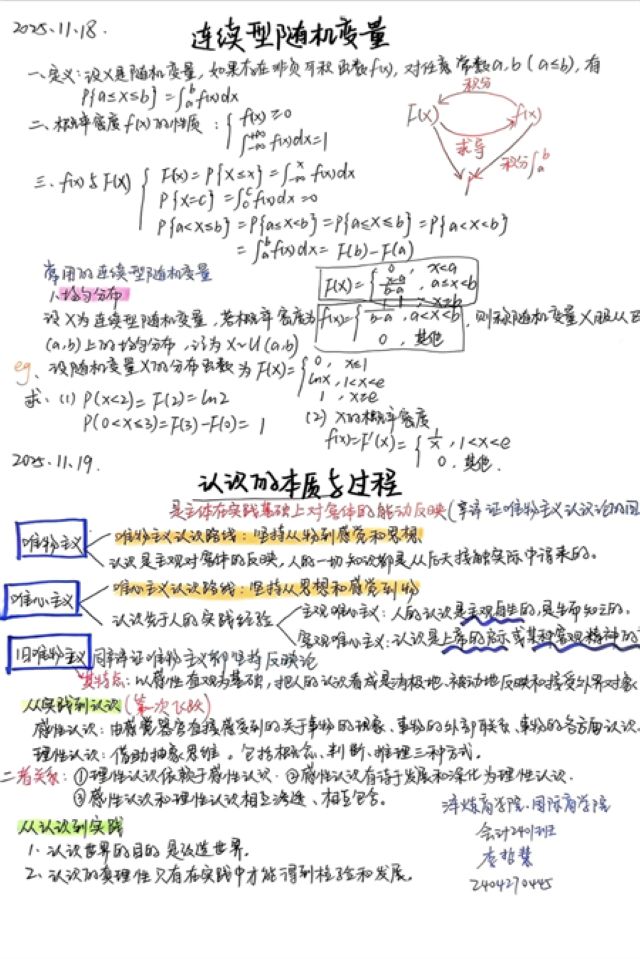 2025.11.18.
连续型随机变量
一、定义:设X是随机变量,如果存在非负可积函数f(x),对任意常数a,b(a≤b),有
P{a≤X≤b}=∫ₐᵇf(x)dx
二、概率密度f(x)的性质:{ f(x)≥0
∫₋∞⁺∞f(x)dx=1
积分
F(x) f(x)
求导
积分∫ₐᵇ
P
三、f(x)与F(x) { F(x)=P{X≤x}=∫₋∞ˣf(x)dx
P{X=c}=∫ᶜ꜀f(x)dx=0
P{a<X≤b}=P{a≤X<b}=P{a≤X≤b}=P{a<X<b}
=∫ₐᵇf(x)dx=F(b)-F(a)
常用的连续型随机变量
F(x)={ 0, x<a
x-a/b-a, a≤x<b
1, x≥b
1.均匀分布
设X为连续型随机变量,若概率密度为f(x)={ 1/b-a, a<x<b ,则称随机变量X服从区
0, 其他
(a,b)上的均匀分布,记为X~U(a,b)
eg、设随机变量X的分布函数为F(x)={ 0, x≤1
lnx, 1<x<e
1, x≥e
求:(1) P(X<2)=F(2)=ln2
P(0<X≤3)=F(3)-F(0)=1
(2) X的概率密度
f(x)=F'(x)={ 1/x, 1<x<e
0, 其他.
2025.11.19.
认识的本质与过程
是主体在实践基础上对客体的能动反映(辩证唯物主义认识论的回
唯物主义
唯物主义认识路线:坚持从物到感觉和思想
认识是主观对客体的反映,人的一切知识都是从后天接触实际中得来的。
唯心主义
唯心主义认识路线:坚持从思想和感觉到物
认识先于人的实践经验
主观唯心主义:人的认识是主观自生的,是生而知之的。
客观唯心主义:认识是上帝的启示或某种客观精神的
旧唯物主义
同辩证唯物主义都坚持反映论
其特点:以感性直观为基础,把人的认识看成是消极地、被动地反映和接受外界对象
从实践到认识(第一次飞跃)
感性认识:由感觉器官直接感受到的关于事物的现象、事物的外部联系、事物的各方面认识.
理性认识:借助抽象思维。包括概念、判断、推理三种方式。
二者关系:①理性认识依赖于感性认识.②感性认识有待于发展和深化为理性认识.
③感性认识和理性认识相互渗透、相互包含。
从认识到实践
1.认识世界的目的是改造世界.
2、认识的真理性只有在实践中才能得到检验和发展。
商学院.国际商学院
会计2401班
2404270445